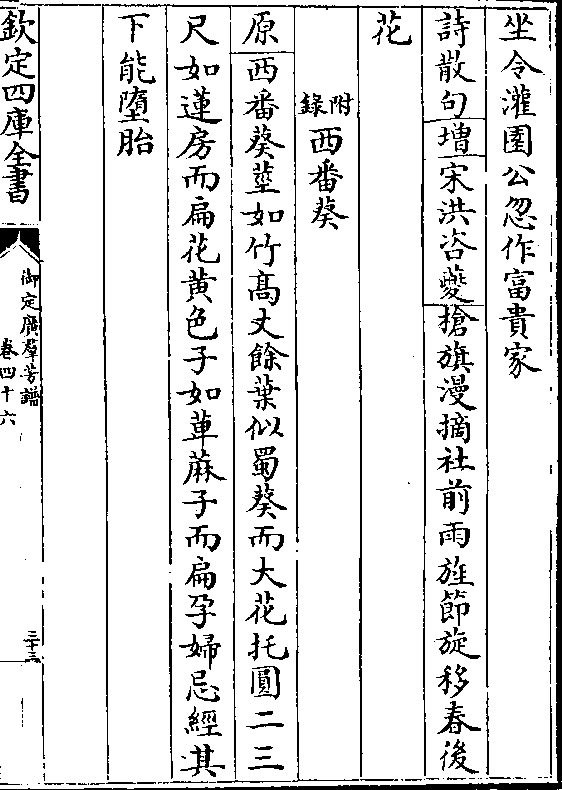 坐令灌園公忽作富貴家
詩散句增宋洪咨夔搶旗漫摘社前雨旌節旋移春後
花
附錄西番葵
原西番葵莖如竹髙丈餘葉似蜀葵而大花托圓二三
尺如蓮房而扁花黄色子如萆蔴子而扁孕婦忌經其
下能墮胎
欽定四庫全書
御定廣羣芳譜
卷四十六
三十三